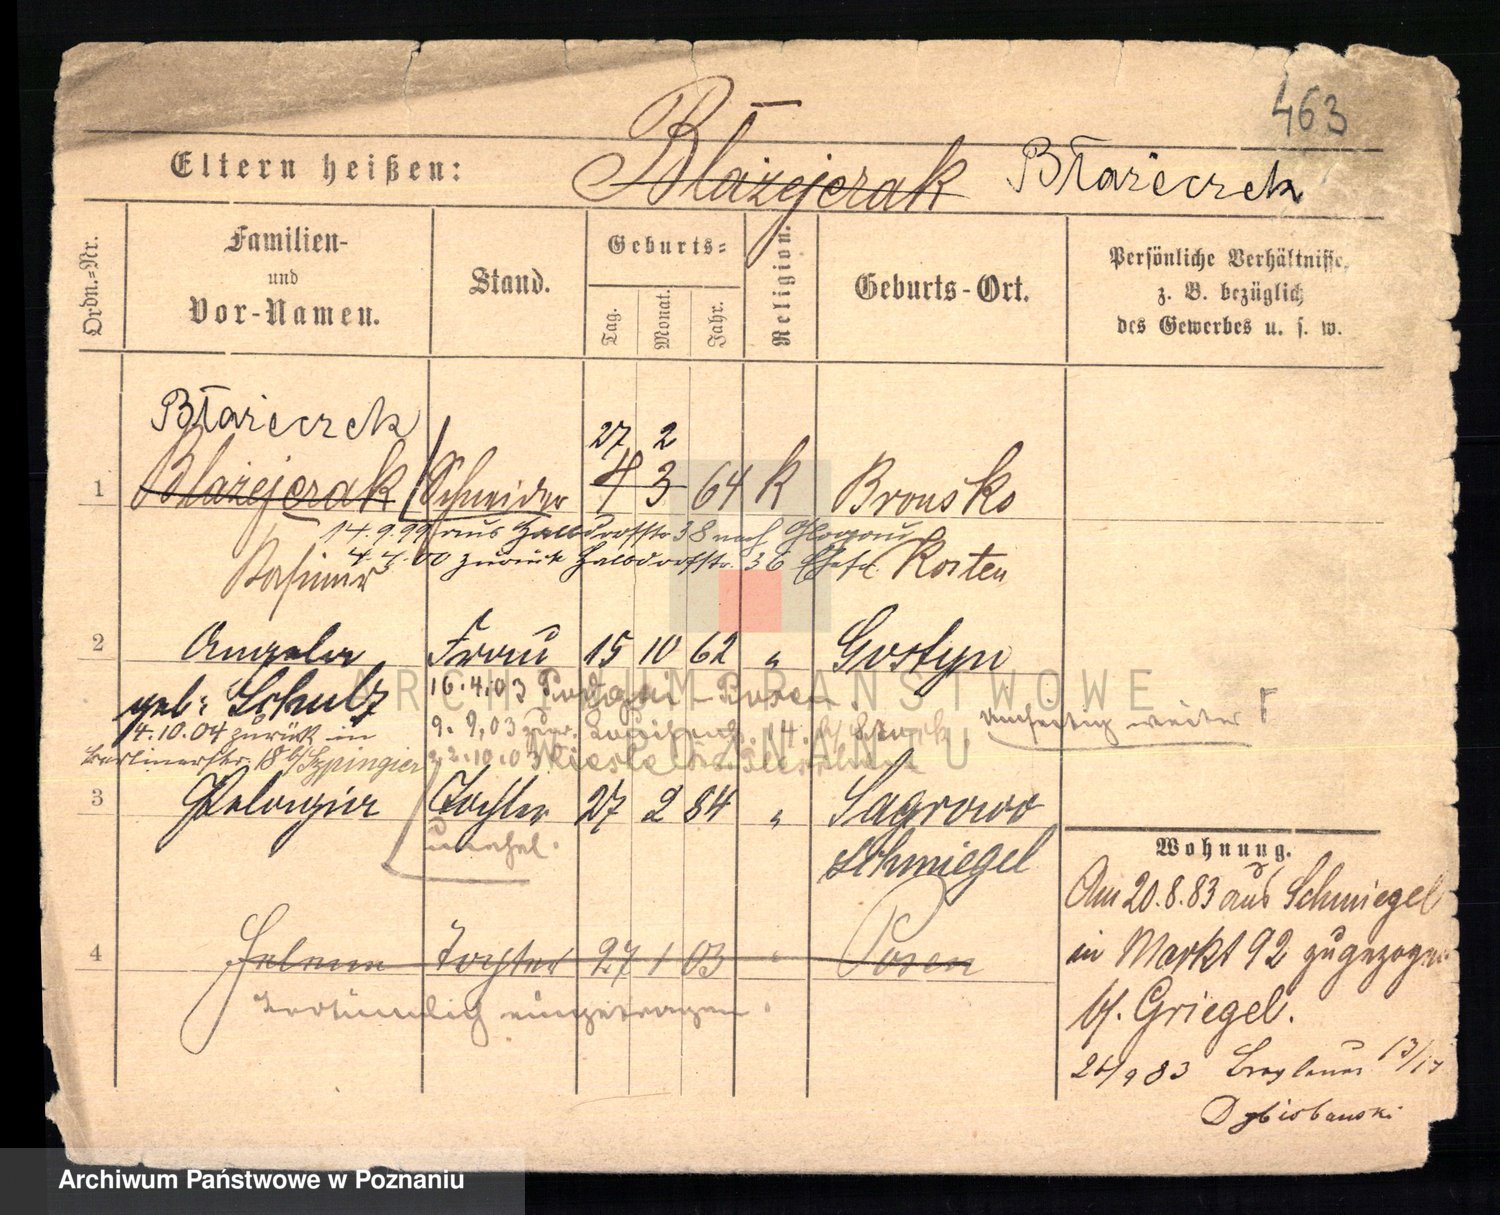 463
Eltern heißen: Błażejczak Błażeczek
Ordn.-Nr.
Familien-
und
Vor-Namen.
Stand.
Geburts-
Tag. Monat. Jahr.
Religion.
Geburts-Ort.
Persönliche Verhältnisse,
z. B. bezüglich
des Gewerbes u. s. w.
Błażeczek
27 2
1 Błażejczak Schneider 4 3 64 K Bronsko
14.9.99 aus Halbdorfstr 38 nach Glogau
4.4.00 zurück Halbdorfstr. 36
Kasimir Kosten
2 Angela Frau 15 10 62 " Gostyn
geb: Schulz 16.4.03 - Posen
14.10.04 zurück in 9.9.03 zur. 14.
Berlinerstr. 18 b/Szpingier 22.10.03
umseitig weiter!
3 Pelagia Tochter 27 2 84 " Sagrowo
unehel. Schmiegel
4 Helene Tochter 27 1 03 " Posen
irrtümlich eingetragen.
Wohnung.
Am 20.8.83 aus Schmiegel
in Markt 92 zugezogen
bf. Griegel.
26/9 83 Breslauer 13/14
ARCHIWUM PAŃSTWOWE
W POZNANIU
Archiwum Państwowe w Poznaniu